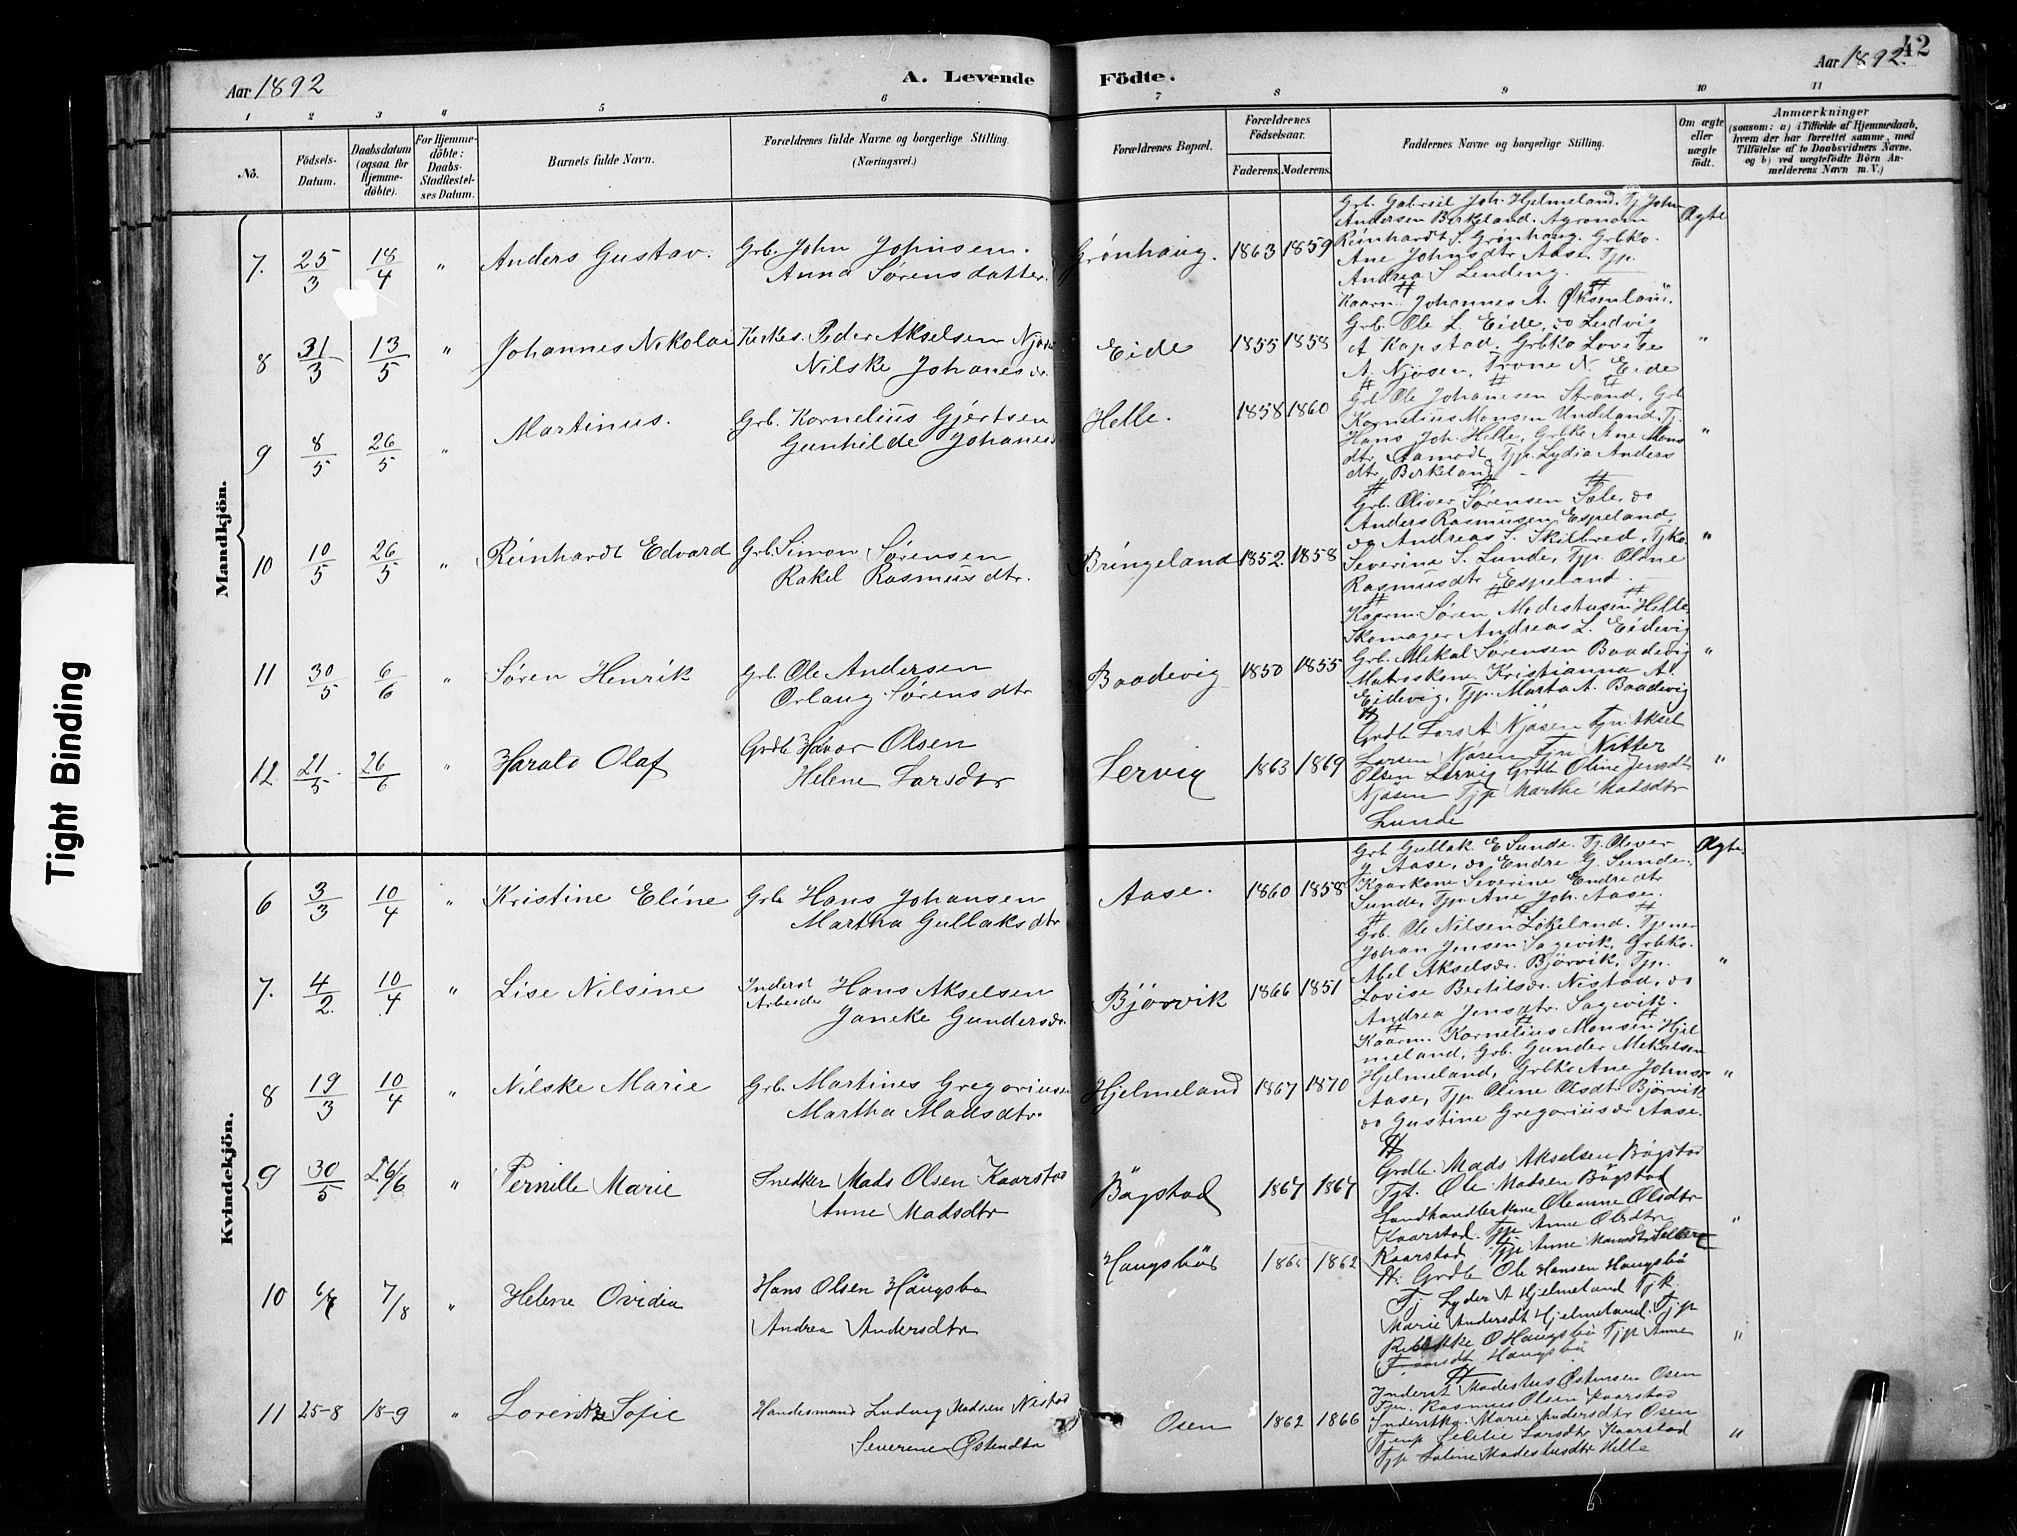 42
Aar 1892
A. Levende
Födte.
Aar 1892.
1 2 3 " 5 6 7 8 9 10 11
Nö.
Födsels-
Datum.
Daabsdatum
(ogsaa for
Hjemme-
döbte).
For Hjemme-
döbte:
Daabs-
Stadfæstel-
ses Datum.
Barnets fulde Navn.
Forældrenes fulde Navne og borgerlige Stilling.
(Næringsvei.)
Forældrenes Bopæl.
Forældrenes
Födselsaar.
Faderens. Moderens.
Faddernes Navne og borgerlige Stilling.
Om ægte
eller
uægte
födt.
Anmærkninger
(saasom: a) i Tilfælde af Hjemmedaab,
hvem der har forrettet samme, med
Tilföielse af to Daabsvidners Navne.
og b) ved uægtefödte Börn An-
melderens Navn m. V.)
Mandkjön.
7. 25/3 18/4 " Anders Gustav. Grb. John Johnsen.
Anna Sørensdatter.
Grönhaug. 1863 1859
Grb. Gabriel Joh. Hjelmeland. Tj. John
Andersen Birkeland. Agronom
Reinhardt S. Grønhaug. Grbko.
Ane Johnsdtr Aase. Tjp.
Andrea S. Lending.
Ægte
8 31/3 13/5 " Johannes Nikolai Kirkes. Peder Akselsen
Nilske Johanesdr.
Eide 1855 1858
Kaarm. Johannes A.
Grb. Ole L. Eide, do Ludvig
A. Kapstad. Grbko Lovise
A. Njøsen, Trone N. Eide
"
9 8/5 26/5 " Martinus. Grb. Kornelius Gjertsen
Gunhilde Johanes
Helle. 1858 1860
Grb. Ole Johanesen Strand, Grb
Kornelius Monsen Undeland. Tj.
Hans Joh. Helle, Grbko Ane Mons
dtr Aamodt, Tjp. Lydia Anders
dtr. Birkland
"
10 10/5 26/5 " Reinhardt Edvard Grb. Simon Sørensen
Rakel Rasmusdtr.
Bringeland 1852. 1858
Grb. Oliver Sørensen Sæle, do
Anders Rasmusen Espeland,
do Andreas S. Skilbred, Tjko
Severine S. Lunde, Tjp. Oldne
Rasmusdtr Espeland.
"
11 30/5 6/6 " Søren Henrik Grb. Ole Andersen
Orlaug Sørensdtr
Baadevig 1850 1855
Kaarm. Søren Modestusen Helle,
Skomager Andreas L. Eidevig
Grb. Mikal Sørensen Baadevig
Matroskone Kristianna A.
Eidevig, Tjp. Marta A. Baadevig
"
12 21/5 26/6 " Harald Olaf Grdb Havar Olsen
Helene Larsdtr
Lervig 1863 1869
Grdb Lars A Njøsen Tjn. Aksel
Larsen Njøsen Tjn Nitter
Olsen Lervig Grdb Oline Jensdtr
Njøsen Tjp Marthe Madsdtr
Lunde
"
Kvindekjön.
6 3/3 10/4 " Kristine Eline Grb Hans Johansen
Martha Gullaksdtr
Aase. 1860 1858
Grb. Gullak E Sunde. Tj. Oliver
J. Aase, do Endre G. Sunde,
Kaarkone Severine Endredtr
Sunde, Tjp. Ane Joh. Aase.
Ægte.
7. 4/2 10/4 " Lise Nilsine Inderst
Arbeider Hans Akselsen
Janeke Gundersdr.
Bjørvik 1866 1851
Grb. Ole Nilsen Løkeland. Tjener
Johan Jensen Sagevik, Grbko.
Abel Akselsdr. Bjørvik, Tjp.
Lovise Bertilsdr. Nistad, do
Andrea Jensdtr. Sagevik.
"
8 19/3 10/4 " Nilske Marie Grb. Martines Gregoriusen
Martha Madsdtr.
Hjelmeland 1867 1870
Kaarm. Kornelius Monsen Hjel
meland, Grb. Gunder Mikalsen
Hjelmeland, Grbko Ane Johnsdr
Aase, Tjp. Oline Olsdtr Bjørvik
do Gustine Gregoriusdr Aase.
"
9 30/5 26/6 " Pernille Marie Snedker Mads Olsen Kaarstad
Anne Madsdtr
Bögstad 1867 1867
Grdb. Mads Akselsen Bögstad
Tjt. Ole Madsen Bögstad
Landhandlerkone Oleanne Olsdtr
Kaarstad. Tjp Anne Olsdtr
Kaarstad Tjp Anne
"
10 7/8 " Helene Ovidia Hans Olsen Haugsbø
Andrea Andersdtr
Haugsböe 1862
Grdb Ole Hansen Haugsbö
Tj Lyder A Hjelmeland Tjk.
Marie Andersdt Hjelmeland. Tjp
Rebekke O Haugsbö Tjp Anne
Haugsbö
"
11 25-8 18-9 " Sofie Ludvig Madsen Nistad
Severine Østendtr
Osen 1862 1866
Inderst Madestus Østensen Osen
Tjn. Rasmus Olsen Kaarstad
Inderstko. Marie Andersdtr Osen
Cecilie Larsdtr Kaarstad
Tjp Madestusdtr Helle
"
Tight Binding